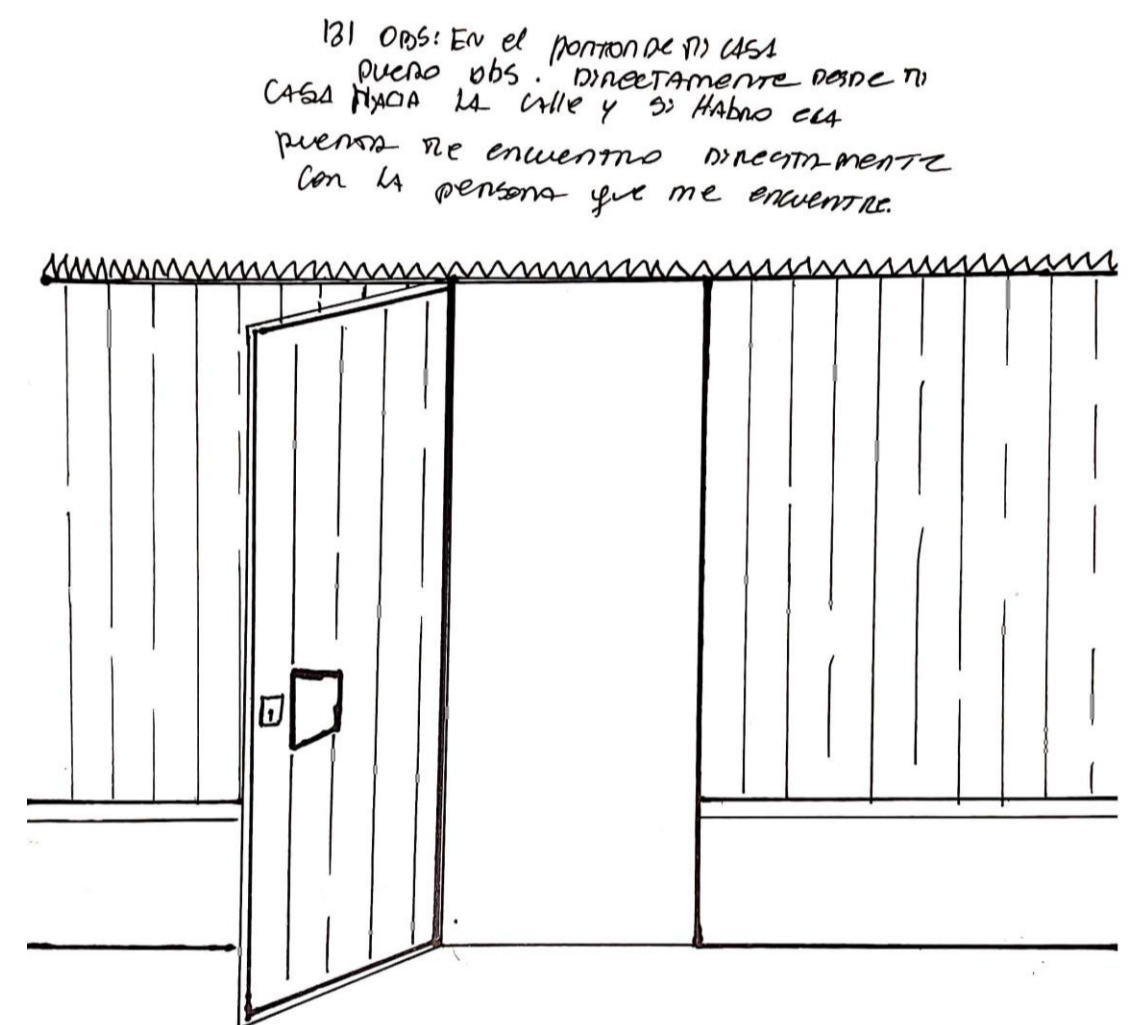 131 OBS: EN el PORTON DE MI CASA
PUEDO Obs. DIRECTAMENTE DESDE MI
CASA HACIA LA CAlle y Si HABRO
PUERTA ME ENCUENTRO DIRECTAMENTE
CON LA PERSONA QUE ME ENCUENTRE.